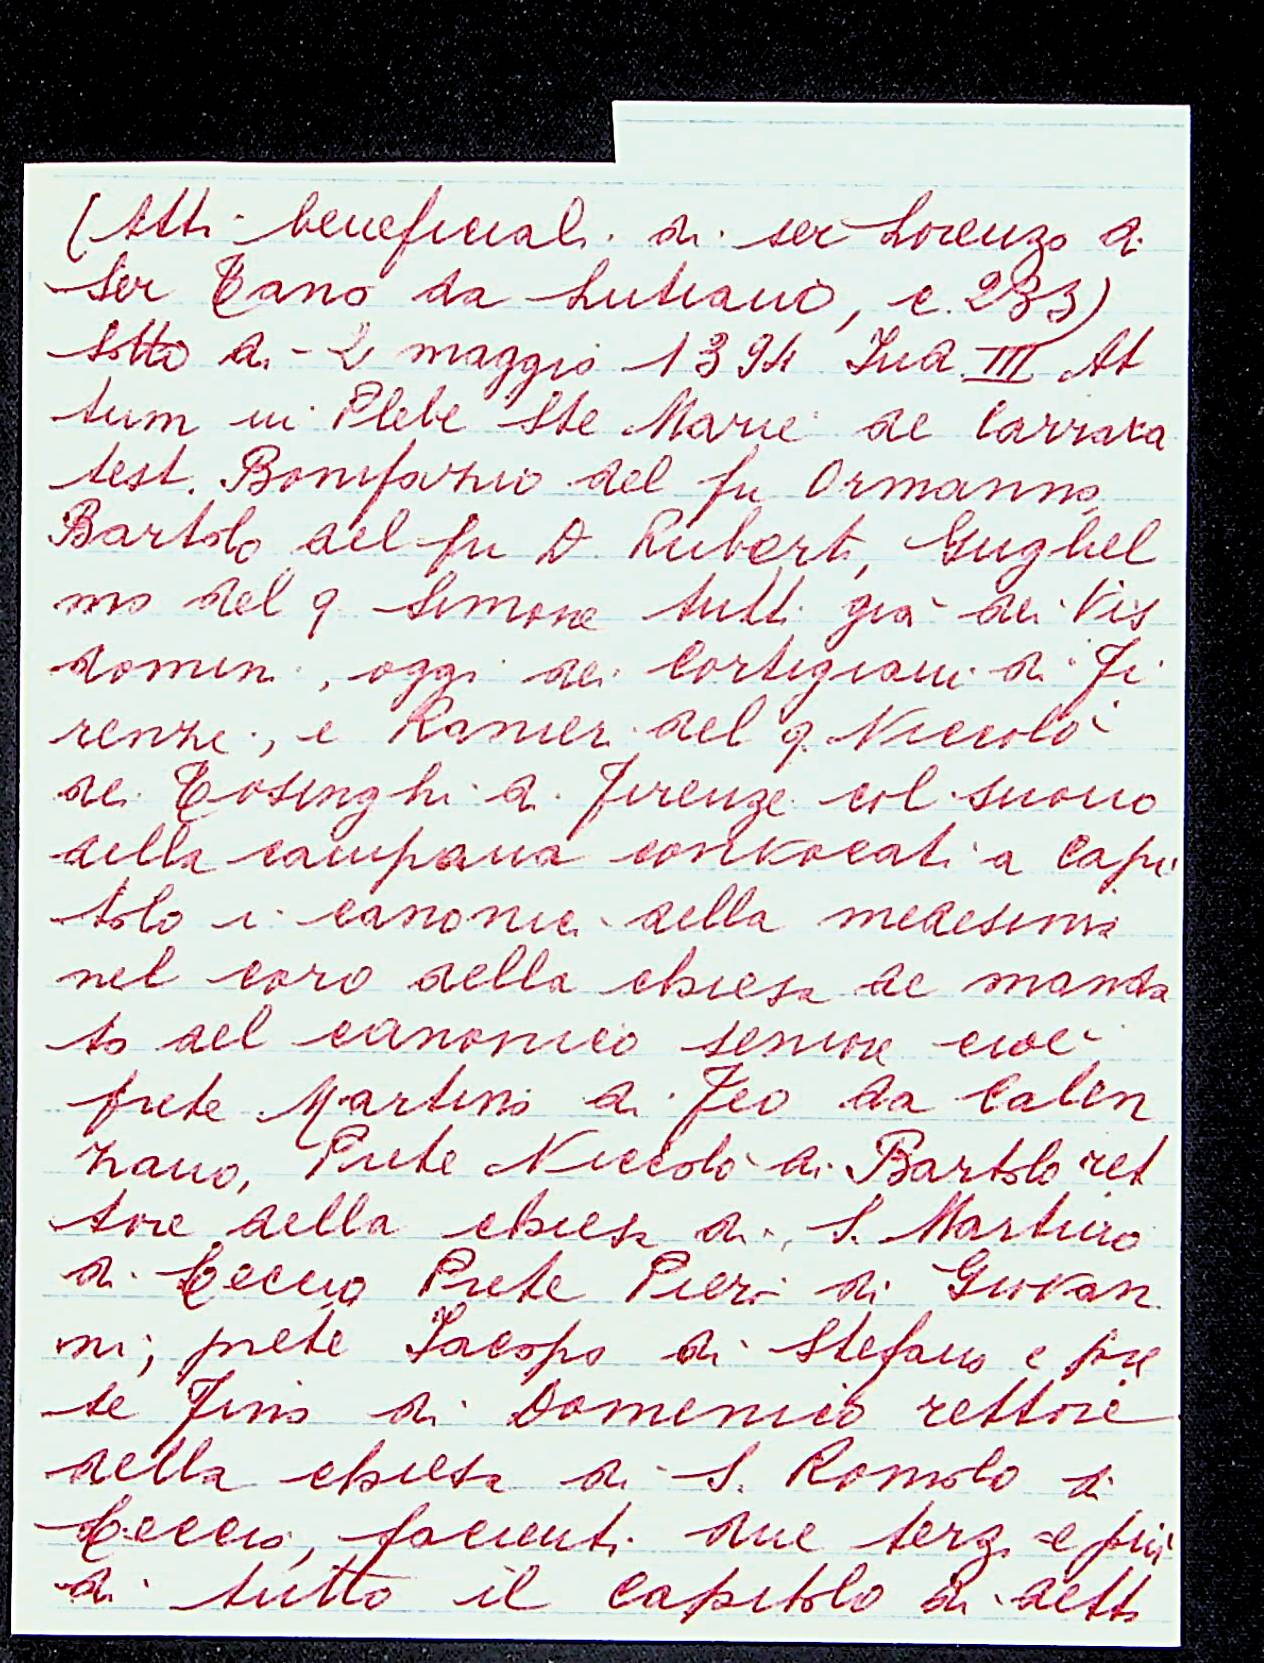 (Atti beneficiali di ser Lorenzo di
Ser Tano da Lutiano, c. 233)
sotto di 2 maggio 1394 Ind. III At
tum in Plebe Ste Marie de Carraria
test. Bonifazio del fu Ormanno
Bartolo del fu D. Ruberti, Gugliel
mo del q Simone tutti già dei Vis
domini, oggi dei Cortigiani di Fi
renze, e Ranieri del q. Niccolò
dei Tosinghi di Firenze col suono
della campana convocati a Capi
tolo i canonici della medesima
nel coro della chiesa de manda
to del canonico seniore cioè
prete Martino di Feo da Calen
zano, Prete Niccolò di Bartolo ret
tore della chiesa di S. Martino
di Leccio Prete Piero di Giovan
ni; prete Jacopo di Stefano e pre
te Fino di Domenico rettore
della chiesa di S. Romolo di
Leccio, facienti due terzi e più
di tutto il Capitolo di detta